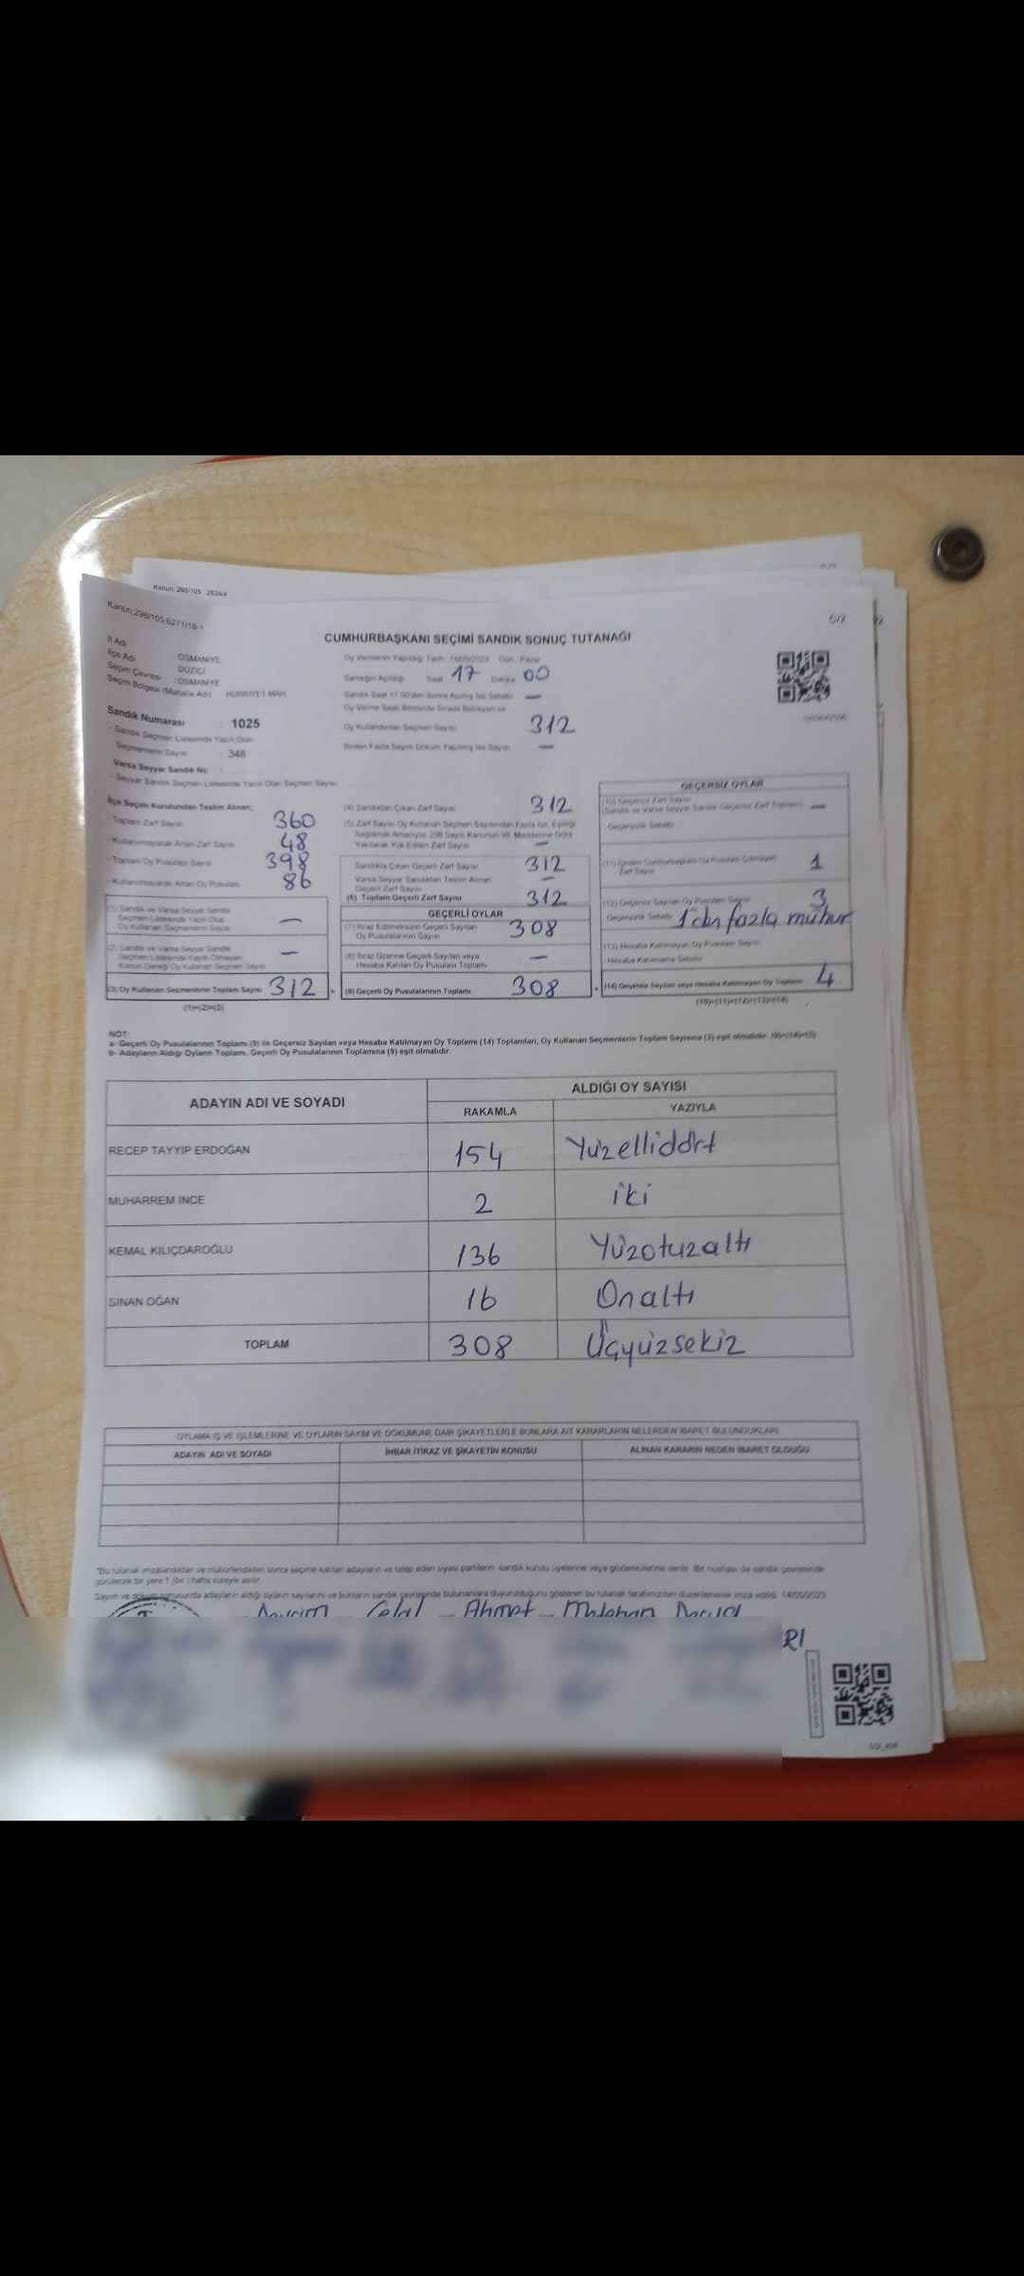 Kanun: 298/105
Kanun: 298/105;6271/18-1
CUMHURBAŞKANI SEÇİMİ SANDIK SONUÇ TUTANAĞI
İl Adı OSMANİYE
İlçe Adı DÜZİÇİ
Seçim Çevresi : OSMANİYE
Seçim Bölgesi (Mahalle Adı) HÜRRİYET MAH.
Sandık Numarası : 1025
- Sandık Seçmen Listesinde Yazılı Olan
Seçmenlerin Sayısı : 348
Varsa Seyyar Sandık No
- Seyyar Sandık Seçmen Listesinde Yazılı Olan Seçmen Sayısı
Oy Vermenin Yapıldığı Tarih : 14/05/2023 Gün : Pazar
Sandığın Açıldığı Saat 17 Dakika 00
Sandık Saat 17.00'den Sonra Açılmış İse Sebebi —
Oy Verme Saati Bitiminde Sırada Bekleyen ve
Oy Kullandırılan Seçmen Sayısı 312
Birden Fazla Sayım Döküm Yapılmış İse Sayısı —
İlçe Seçim Kurulundan Teslim Alınan;
- Toplam Zarf Sayısı 360
- Kullanılmayarak Artan Zarf Sayısı 48
- Toplam Oy Pusulası Sayısı 398
- Kullanılmayarak Artan Oy Pusulası 86
(1) Sandık ve Varsa Seyyar Sandık
Seçmen Listesinde Yazılı Olup
Oy Kullanan Seçmenlerin Sayısı —
(2) Sandık ve Varsa Seyyar Sandık
Seçmen Listesinde Yazılı Olmayan
Kanun Gereği Oy Kullanan Seçmen Sayısı —
(3) Oy Kullanan Seçmenlerin Toplam Sayısı 312
(1)+(2)=(3)
(4) Sandıktan Çıkan Zarf Sayısı 312
(5) Zarf Sayısı Oy Kullanan Seçmen Sayısından Fazla İse, Eşitliği
Sağlamak Amacıyla, 298 Sayılı Kanunun 98. Maddesine Göre
Yakılarak Yok Edilen Zarf Sayısı —
Sandıkta Çıkan Geçerli Zarf Sayısı 312
Varsa Seyyar Sandıktan Teslim Alınan
Geçerli Zarf Sayısı —
(6) Toplam Geçerli Zarf Sayısı 312
GEÇERLİ OYLAR
(7) İtiraz Edilmeksizin Geçerli Sayılan
Oy Pusulalarının Sayısı 308
(8) İtiraz Üzerine Geçerli Sayılan veya
Hesaba Katılan Oy Pusulası Toplamı —
(9) Geçerli Oy Pusulalarının Toplamı 308
GEÇERSİZ OYLAR
(10) Geçersiz Zarf Sayısı
(Sandık ve Varsa Seyyar Sandık Geçersiz Zarf Toplamı) —
Geçersizlik Sebebi
(11) İçinden Cumhurbaşkanı Oy Pusulası Çıkmayan
Zarf Sayısı 1
(12) Geçersiz Sayılan Oy Pusulası Sayısı 3
Geçersizlik Sebebi 1'den fazla mühür
(13) Hesaba Katılmayan Oy Pusulası Sayısı
Hesaba Katılmama Sebebi
(14) Geçersiz Sayılan veya Hesaba Katılmayan Oy Toplamı 4
(10)+(11)+(12)+(13)=(14)
NOT:
a- Geçerli Oy Pusulalarının Toplamı (9) ile Geçersiz Sayılan veya Hesaba Katılmayan Oy Toplamı (14) Toplamları, Oy Kullanan Seçmenlerin Toplam Sayısına (3) eşit olmalıdır. (9)+(14)=(3)
b- Adayların Aldığı Oyların Toplamı, Geçerli Oy Pusulalarının Toplamına (9) eşit olmalıdır.
ADAYIN ADI VE SOYADI
ALDIĞI OY SAYISI
RAKAMLA YAZIYLA
RECEP TAYYİP ERDOĞAN 154 Yüzellidört
MUHARREM İNCE 2 iki
KEMAL KILIÇDAROĞLU 136 Yüzotuzaltı
SİNAN OĞAN 16 Onaltı
TOPLAM 308 Üçyüzsekiz
OYLAMA İŞ VE İŞLEMLERİNE VE OYLARIN SAYIM VE DÖKÜMÜNE DAİR ŞİKAYETLERLE BUNLARA AİT KARARLARIN NELERDEN İBARET BULUNDUKLARI
ADAYIN ADI VE SOYADI İHBAR İTİRAZ VE ŞİKAYETİN KONUSU ALINAN KARARIN NEDEN İBARET OLDUĞU
*Bu tutanak imzalandıktan ve mühürlendikten sonra seçime katılan adayların ve talep eden siyasi partilerin sandık kurulu üyelerine veya gözlemcilerine verilir. Bir nushası da sandık çevresinde
görülecek bir yere 1 (bir) hafta süreyle asılır.
Sayım ve döküm sonucunda adayların aldığı oyların sayılarını ve bunların sandık çevresinde bulunanlara duyurulduğunu gösteren bu tutanak tarafımızdan düzenlenerek imza edildi. 14/05/2023
Celal - Ahmet -